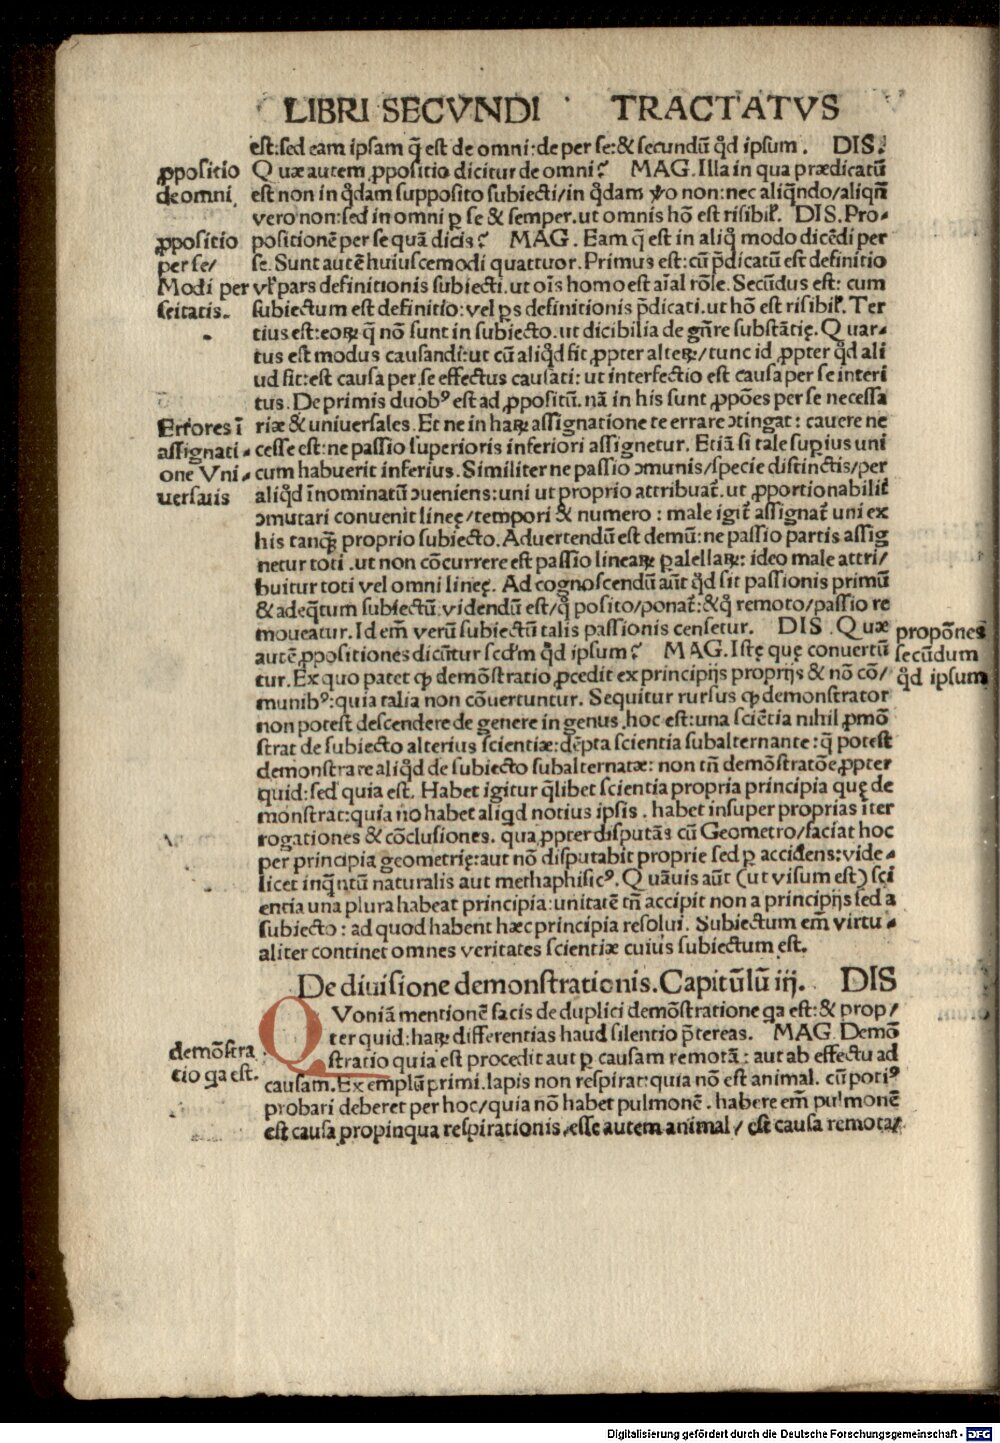 LIBRI SECVNDI TRACTATVS
est: sed eam ipsam q̃ est de omni: de per se: & secundũ qd̕ ipsum. DIS.
Quæ autem ꝓpositio dicitur de omni? MAG. Illa in qua prædicatũ
ꝓpositio
de omni
est non in qd̕am supposito subiecti/in qd̕am ꝟo non: nec aliq̃ndo/aliqñ
vero non: sed in omni ꝑ se & semper. ut omnis hõ est risibiƚ. DIS. Pro-
positionẽ per se quã dicis? MAG. Eam q̃ est in aliq̊ modo dicẽdi per
ꝓpositio
per se/
Modi per
seitatis.
se. Sunt autẽ huiuscemodi quattuor. Primus est: cũ p̃dicatũ est definitio
vƚ pars definitionis subiecti. ut oĩs homo est aĩal rõle. Secũdus est: cum
subiectum est definitio: vel ꝑs definitionis p̃dicati. ut hõ est risibiƚ. Ter
tius est: eoꝝ q̃ nõ sunt in subiecto. ut dicibilia de gñre substãtię. Quar-
tus est modus causandi: ut cũ aliqd̕ fit ꝓpter alteꝝ/tunc id ꝓpter qd̕ ali
ud fit: est causa per se effectus causati: ut interfectio est causa per se interi
tus. De primis duobꝰ est ad ꝓpositũ. nã in his sunt ꝓpões per se necessa
riæ & uniuersales. Et ne in haꝝ assignatione te errare ↄtingat: cauere ne
Errores ĩ
assignati-
one Vni-
uersalis
cesse est: ne passio superioris inferiori assignetur. Etiã si tale suꝑius uni
cum habuerit inferius. Similiter ne passio ↄmunis/specie distinctis/per
aliqd̕ ĩnominatũ ↄueniens: uni ut proprio attribuat᷑. ut ꝓportionabilit᷑
ↄmutari conuenit lineę/tempori & numero: male igit᷑ assignat᷑ uni ex
his tanq̃ꝫ proprio subiecto. Aduertendũ est demũ: ne passio partis assig
netur toti. ut non cõcurrere est passio lineaꝝ ꝑalellaꝝ: ideo male attri/
buitur toti vel omni lineę. Ad cognoscendũ aũt qd̕ sit passionis primũ
& adeq̃tum subiectũ: videndũ est/q̊ posito/ponat᷑: & q̊ remoto/passio re
moueatur. Id em̃ verũ subiectũ talis passionis censetur. DIS. Quæ
autẽ ꝓpositiones dicũtur secd̕m qd̕ ipsum? MAG. Istę quę conuertũ
propõnes
secũdum
qd̕ ipsum
tur. Ex quo patet ꝙ demõstratio ꝓcedit ex principijs proprijs & nõ cõ/
munibꝰ: quia talia non cõuertuntur. Sequitur rursus ꝙ demonstrator
non potest descendere de genere in genus. hoc est: una sciẽtia nihil ꝓmõ
strat de subiecto alterius scientiæ: dẽpta scientia subalternante: q̃ potest
demonstrare aliqd̕ de subiecto subalternatæ: non tñ demõstratõe ꝓpter
quid: sed quia est. Habet igitur q̃libet scientia propria principia quę de
monstrat: quia nõ habet aliqd notius ipsis. habet insuper proprias iter
rogationes & cõclusiones. quaꝓpter disputãs cũ Geometro/faciat hoc
per principia geometrię: aut nõ disputabit proprie sed ꝑ accidens: vide-
licet inq̃ntũ naturalis aut methaphisicꝰ. Quãuis aũt (ut visum est) sci
entia una plura habeat principia: unitatẽ tñ accipit non a principijs sed a
subiecto: ad quod habent hæc principia resolui. Subiectum em̃ virtu-
aliter continet omnes veritates scientiæ cuius subiectum est.
De diuisione demonstrationis. Capitũlũ iij. DIS
QVoniã mentionẽ facis de duplici demõstratione qa est: & prop/
ter quid: haꝝ differentias haud silentio p̃tereas. MAG. Demõ
stratio quia est procedit aut ꝑ causam remotã: aut ab effectu ad
demõstra
tio qa est.
causam. Exemplũ primi. lapis non respirat: quia nõ est animal. cũ potiꝰ
probari deberet per hoc/quia nõ habet pulmonẽ. habere em̃ pulmonẽ
est causa propinqua respirationis. esse autem animal/est causa remota/
Digitalisierung gefördert durch die Deutsche Forschungsgemeinschaft - DFG